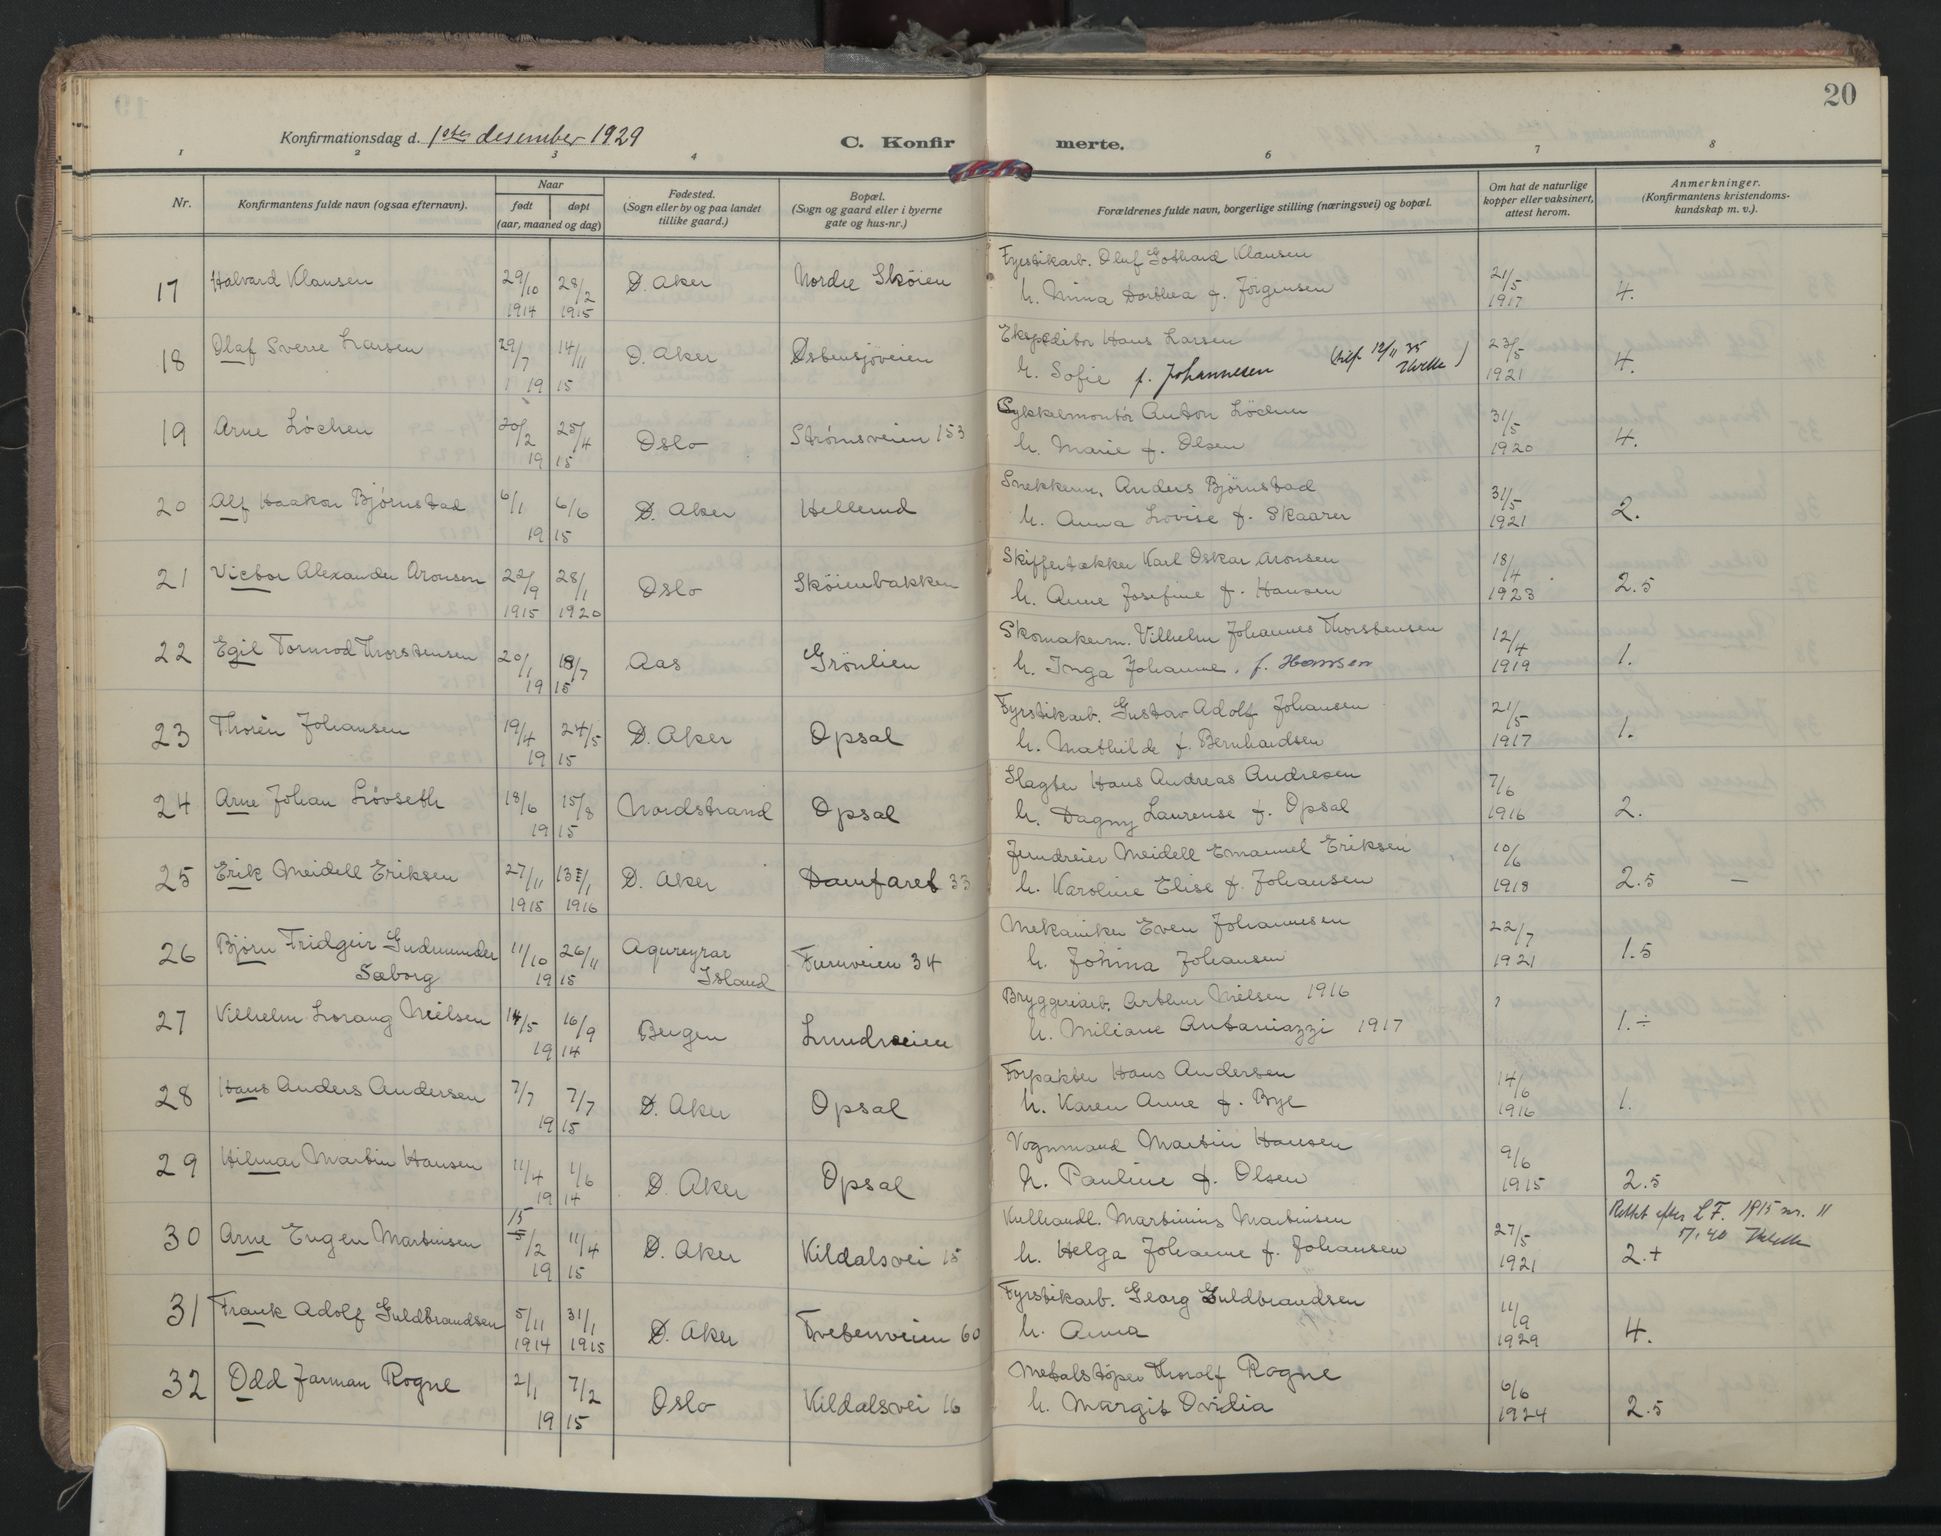 20
Konfirmationsdag d. 1ste desember 1929
C. Konfirmerte.
1 2 3 4 6 7 8
Nr.
Konfirmantens fulde navn (ogsaa efternavn).
Naar
født døpt
(aar, maaned og dag)
Fødested.
(Sogn eller by og paa landet
tillike gaard.)
Bopæl.
(Sogn og gaard eller i byerne
gate og hus-nr.)
Forældrenes fulde navn, borgerlige stilling (næringsvei) og bopæl.
Om hat de naturlige
kopper eller vaksinert,
attest herom.
Anmerkninger.
(Konfirmantens kristendoms-
kundskap m. v.).
17 Halvard Klausen 29/10 1914 28/2 1915 Ø. Aker Nordre Skøien
Fyrstikarb. Oluf Gothard Klausen
h. Mina Dorthea f. Jørgensen
21/5 1917 4.
18 Olaf Sverre Larsen 29/7 14/11 1915 Ø. Aker Østensjøveien
Ekspeditør Hans Larsen
h. Sofie f. Johannesen 12/11 35
23/5 1921 4.
19 Arne Løchen 20/2 25/4 1915 Oslo Strømsveien 153
Cykkelmontør Anton Løchen
h. Marie f. Olsen
31/5 1920 4.
20 Alf Haakon Bjørnstad 6/1 6/6 1915 Ø. Aker Hellerud
Snekkerm. Anders Bjørnstad
h. Anna Lovise f. Skaarer
31/5 1921 2.
21 Victor Alexander Aronsen 22/9 1915 28/1 1920 Oslo Skøienbakken
Skiffertækker Karl Oskar Aronsen
h. Anne Josefine f. Hansen
18/4 1923 2.5
22 Egil Tormod Thorstensen 20/1 18/7 1915 Aas Grønlien
Skomakerm. Vilhelm Johannes Thorstensen
h. Inga Johanne, f. Hansen
12/4 1919 1.
23 Thorein Johansen 19/4 24/5 1915 Ø. Aker Opsal
Fyrstikarb. Gustav Adolf Johansen
h. Mathilde f. Bernhardsen
21/5 1917 1.
24 Arne Johan Løvseth 18/6 15/8 1915 Nordstrand Opsal
Slagter Hans Andreas Andresen
h. Dagny Laurense f. Opsal
7/6 1916 2.
25 Erik Meidell Eriksen 27/11 1915 13/1 1916 Ø. Aker Damfaret 33
Jerndreier Meidell Emanuel Eriksen
h. Karoline Elise f. Johansen
10/6 1918 2.5 —
26 Bjørn Fridgeir Gudmunder
Sæborg 11/10 26/11 1915 Aqureyrar
Island Furuveien 34
Mekaniker Even Johannesen
h. Jonina Johansen
22/7 1921 1.5
27 Vilhelm Lorang Nielsen 14/5 16/9 1914 Bergen Lundveien
Bryggeriarb. Arthur Nielsen 1916
h. Miliane Antaniazzi 1917
? 1.÷
28 Hans Anders Andersen 7/7 7/7 1915 Ø. Aker Opsal
Forpakter Hans Andersen
h. Karen Anne f. Bye
14/6 1916 1.
29 Hilmar Martin Hansen 11/4 1/6 1914 Ø. Aker Opsal
Vognmand Martin Hansen
h. Pauline f. Olsen
9/6 1915 2.5
30 Arne Eugen Martinsen 15/2 11/4 1915 Ø. Aker Kildalsvei 15
Kulhandl. Martinius Martinsen
h. Helga Johanne f. Johansen
27/5 1921 2.+
Rettet efter L.F. 1915 nr. 11
31 Frank Adolf Guldbrandsen 5/11 1914 31/1 1915 Ø. Aker Tvetenveien 60
Fyrstikarb. Georg Guldbrandsen
h. Anna
11/9 1929 4.
32 Odd Jarman Rogne 2/1 7/2 1915 Oslo Kildalsvei 16
Metalstøper Thorolf Rogne
h. Margit Ovidia
6/6 1924 2.5